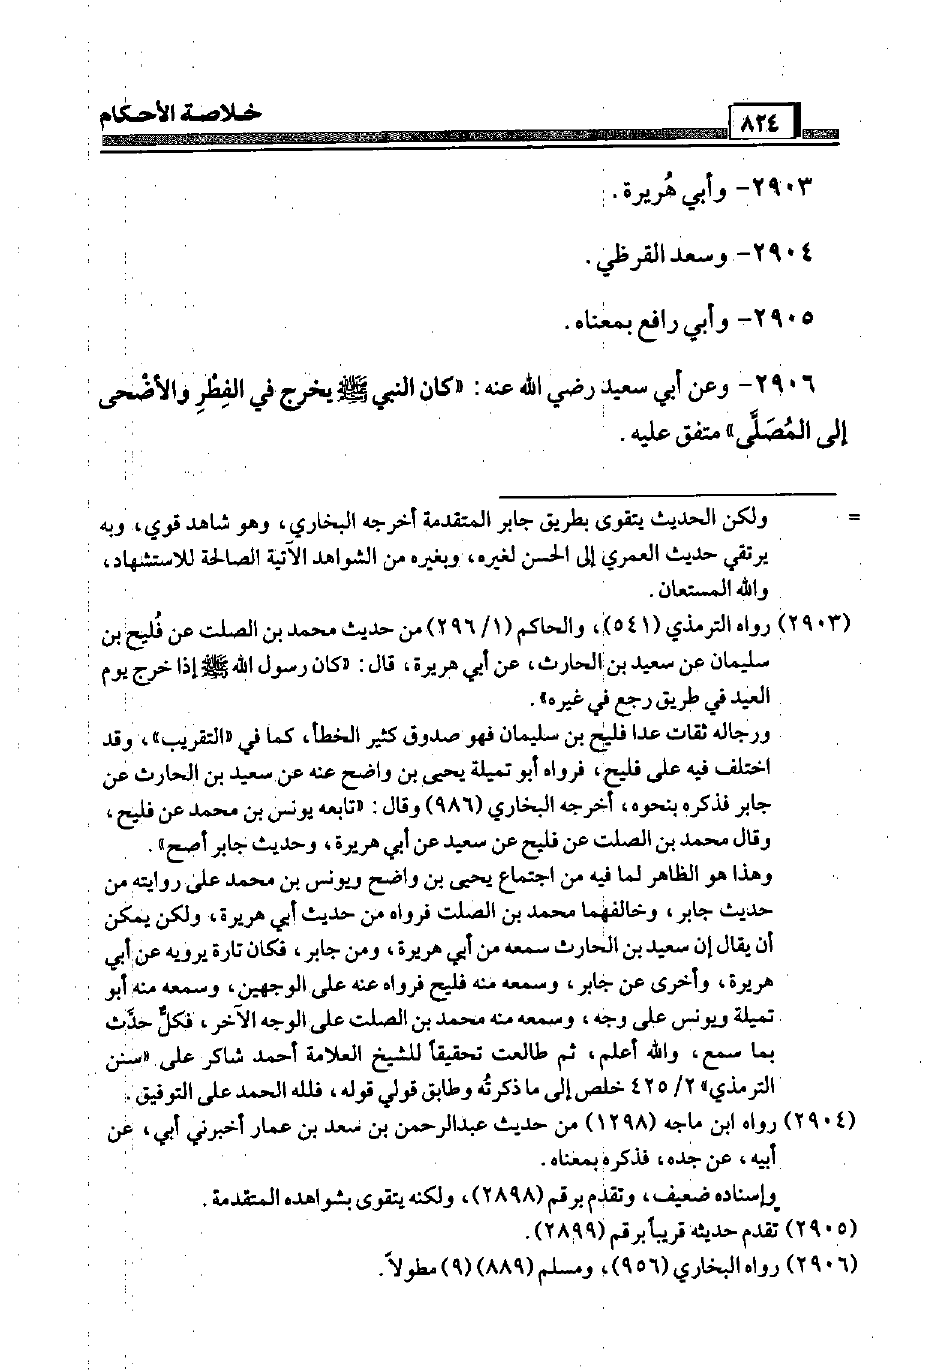 ٨٢٤
خلاصة الأحكام
٢٩٠٣- وأبي هُريرة .
٢٩٠٤- وسعد القرظي .
٢٩٠٥- وأبي رافع بمعناه .
٢٩٠٦- وعن أبي سعيد رضي الله عنه : «كان النبي ﷺ يخرج في الفِطْرِ والأضْحى
إلى المُصَلَّى» متفق عليه .
= ولكن الحديث يتقوى بطريق جابر المتقدمة أخرجه البخاري، وهو شاهد قوي، وبه
يرتقي حديث العمري إلى الحسن لغيره، وبغيره من الشواهد الآتية الصالحة للاستشهاد،
والله المستعان .
(٢٩٠٣) رواه الترمذي (٥٤١)، والحاكم (١/ ٢٩٦) من حديث محمد بن الصلت عن فُليح بن
سليمان عن سعيد بن الحارث، عن أبي هريرة، قال : «كان رسول الله ﷺ إذا خرج يوم
العيد في طريق رجع في غيره» .
ورجاله ثقات عدا فليح بن سليمان فهو صدوق كثير الخطأ، كما في «التقريب»، وقد
اختلف فيه على فليح، فرواه أبو تميلة يحيى بن واضح عنه عن سعيد بن الحارث عن
جابر فذكره بنحوه، أخرجه البخاري (٩٨٦) وقال : «تابعه يونس بن محمد عن فليح،
وقال محمد بن الصلت عن فليح عن سعيد عن أبي هريرة، وحديث جابر أصح» .
وهذا هو الظاهر لما فيه من اجتماع يحيى بن واضح ويونس بن محمد على روايته من
حديث جابر، وخالفهما محمد بن الصلت فرواه من حديث أبي هريرة، ولكن يمكن
أن يقال إن سعيد بن الحارث سمعه من أبي هريرة، ومن جابر، فكان تارة يرويه عن أبي
هريرة، وأخرى عن جابر، وسمعه منه فليح فرواه عنه على الوجهين، وسمعه منه أبو
تميلة ويونس على وجه، وسمعه منه محمد بن الصلت على الوجه الآخر، فكلٌّ حدَّث
بما سمع، والله أعلم، ثم طالعت تحقيقاً للشيخ العلامة أحمد شاكر على «سنن
الترمذي» ٢/ ٤٢٥ خلص إلى ما ذكرتُه وطابق قولي قوله، فلله الحمد على التوفيق .
(٢٩٠٤) رواه ابن ماجه (١٢٩٨) من حديث عبدالرحمن بن سعد بن عمار أخبرني أبي، عن
أبيه، عن جده، فذكره بمعناه .
وإسناده ضعيف، وتقدم برقم (٢٨٩٨)، ولكنه يتقوى بشواهده المتقدمة .
(٢٩٠٥) تقدم حديثه قريباً برقم (٢٨٩٩) .
(٢٩٠٦) رواه البخاري (٩٥٦)، ومسلم (٨٨٩) (٩) مطولاً .